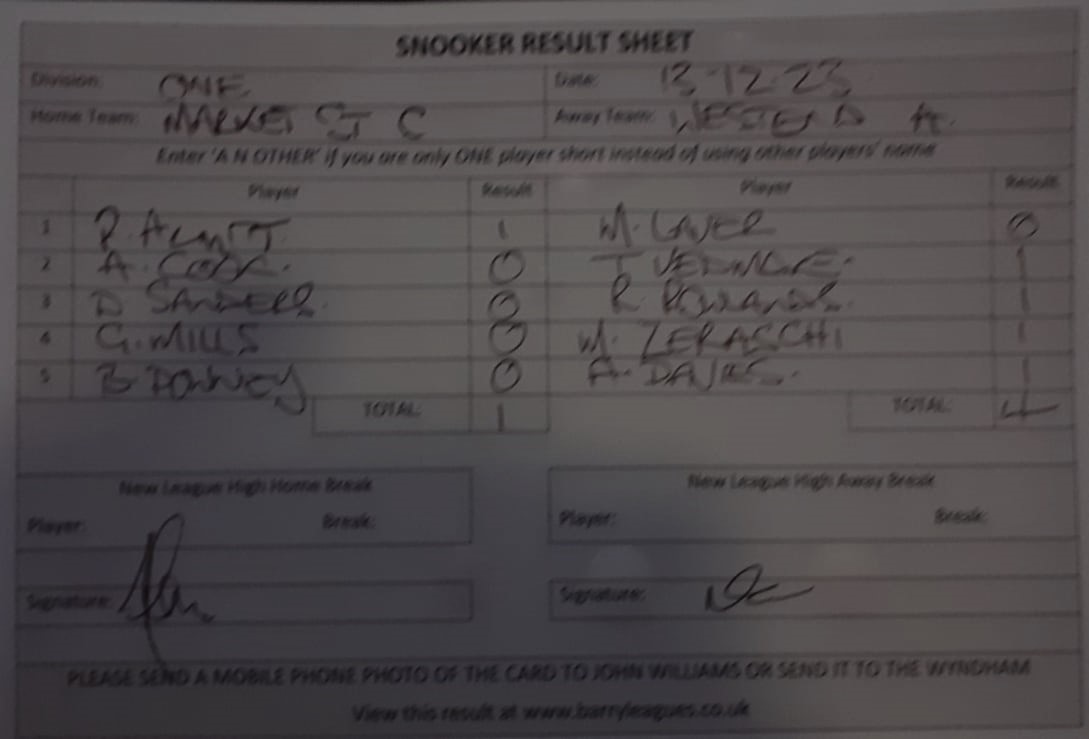 SNOOKER RESULT SHEET
Division: ONE Date: 13-12-23
Home Team: MARKET ST C Away Team: WEST END A.
Enter 'A N OTHER' if you are only ONE player short instead of using other players' name
Player Result Player Result
1 1 M. 0
2 A. COOK. 0 T 1
3 D SANDERS. 0 R. ROWLANDS. 1
4 G. MILLS 0 M. ZERASCHI 1
5 B 0 A. DAVIES. 1
TOTAL: 1 TOTAL: 4
New League High Home Break New League High Away Break
Player: Break: Player: Break:
Signature: Signature:
PLEASE SEND A MOBILE PHONE PHOTO OF THE CARD TO JOHN WILLIAMS OR SEND IT TO THE WYNDHAM
View this result at www.barryleagues.co.uk